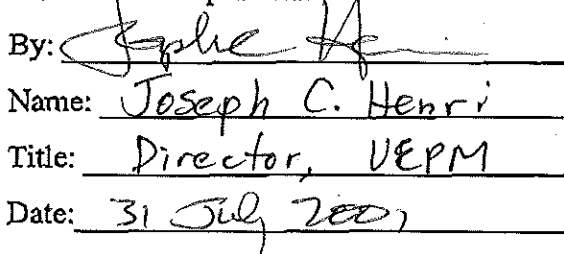 By:
Name: Joseph C. Henri
Title: Director, VEPM
Date: 31 July